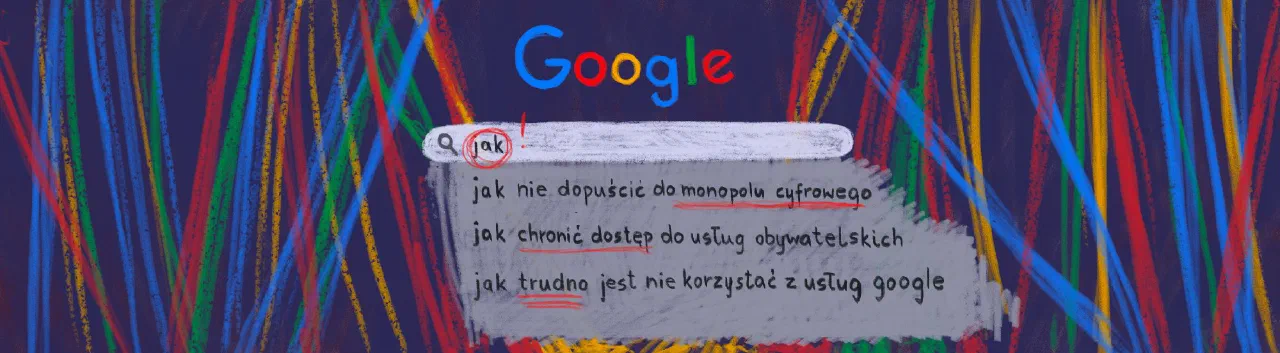 Google
jak !
jak nie dopuścić do monopolu cyfrowego
jak chronić dostęp do usług obywatelskich
jak trudno jest nie korzystać z usług google